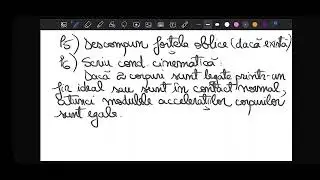 P5) Descompun forțele oblice (dacă există)
P6) Scriu cond. cinematică:
Dacă 2 corpuri sunt legate printr-un
fir ideal sau sunt în contact normal,
atunci modulele accelerațiilor corpurilor
sunt egale.